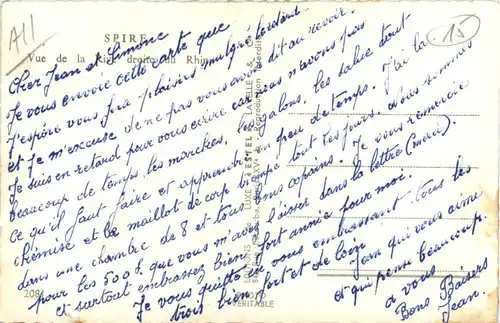 A11
15
SPIRE
Vue de la Rive droite du Rhin
Cher Jean et Simone
Je vous envoie cette carte que
J'espère vous fera plaisirs malgré
et je m'excuse de ne pas vous avoir dit au revoir.
Je suis en retard pour vous écrire car nous n'avons pas
beaucoup de temps, les marches, les galons, les salue tout
ce qu'il faut faire et apprendre en peu de temps. J'ai la
chemise et le maillot de corp tout les jours. Nous sommes
dans une chambre de 8 et tous copains. Je vous remercie
pour les 500f que vous m'avez laisser dans la lettre (mera)
et surtout embrassez bien fort année pour moi.
Je vous quitte en vous embrassant tous les
trois bien fort et de loin.
Jean qui vous aime
et qui pense beaucoup
a vous
Bons Baisers
Jean.
208
ESTEL
LUXE
Reproduction Interdite
VÉRITABLE